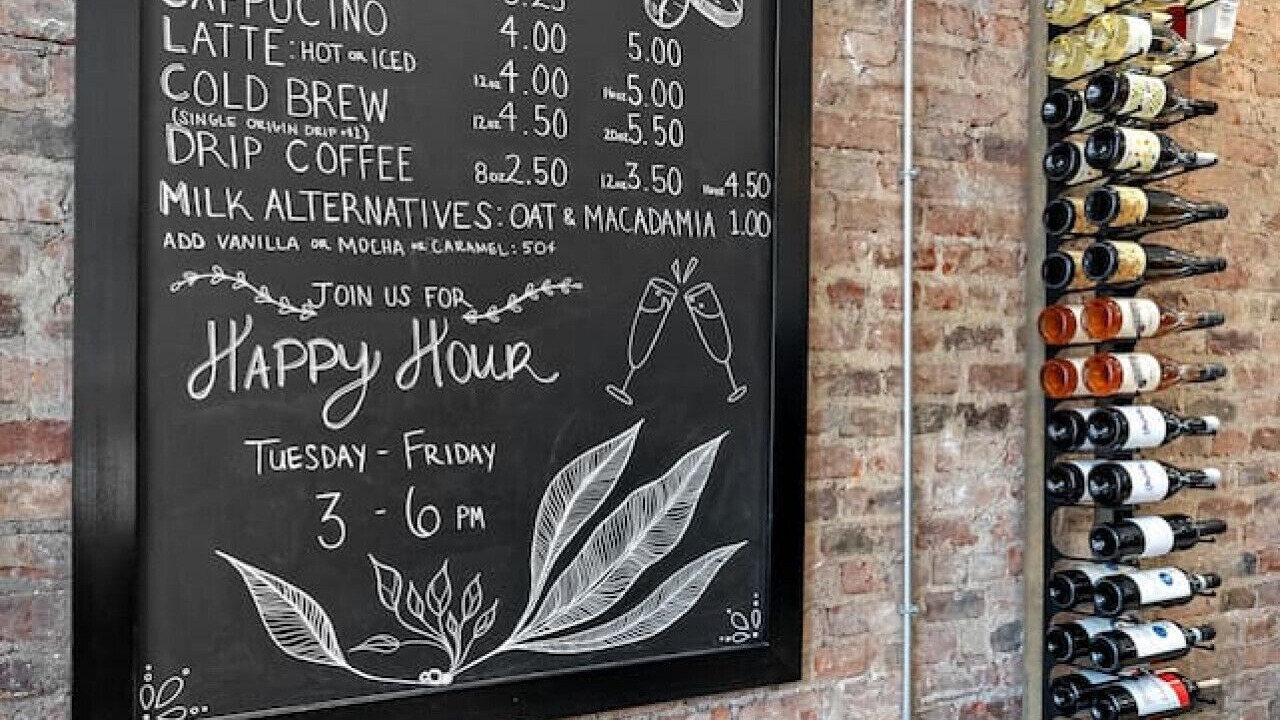 CAPPUCINO 4.00 5.00
LATTE: HOT OR ICED 12oz 4.00 16oz 5.00
COLD BREW 12oz 4.50 20oz 5.50
(SINGLE ORIGIN DRIP +$1)
DRIP COFFEE 8oz 2.50 12oz 3.50 16oz 4.50
MILK ALTERNATIVES: OAT & MACADAMIA 1.00
ADD VANILLA OR MOCHA OR CARAMEL: 50¢
JOIN US FOR
HAPPY HOUR
TUESDAY - FRIDAY
3 - 6 PM